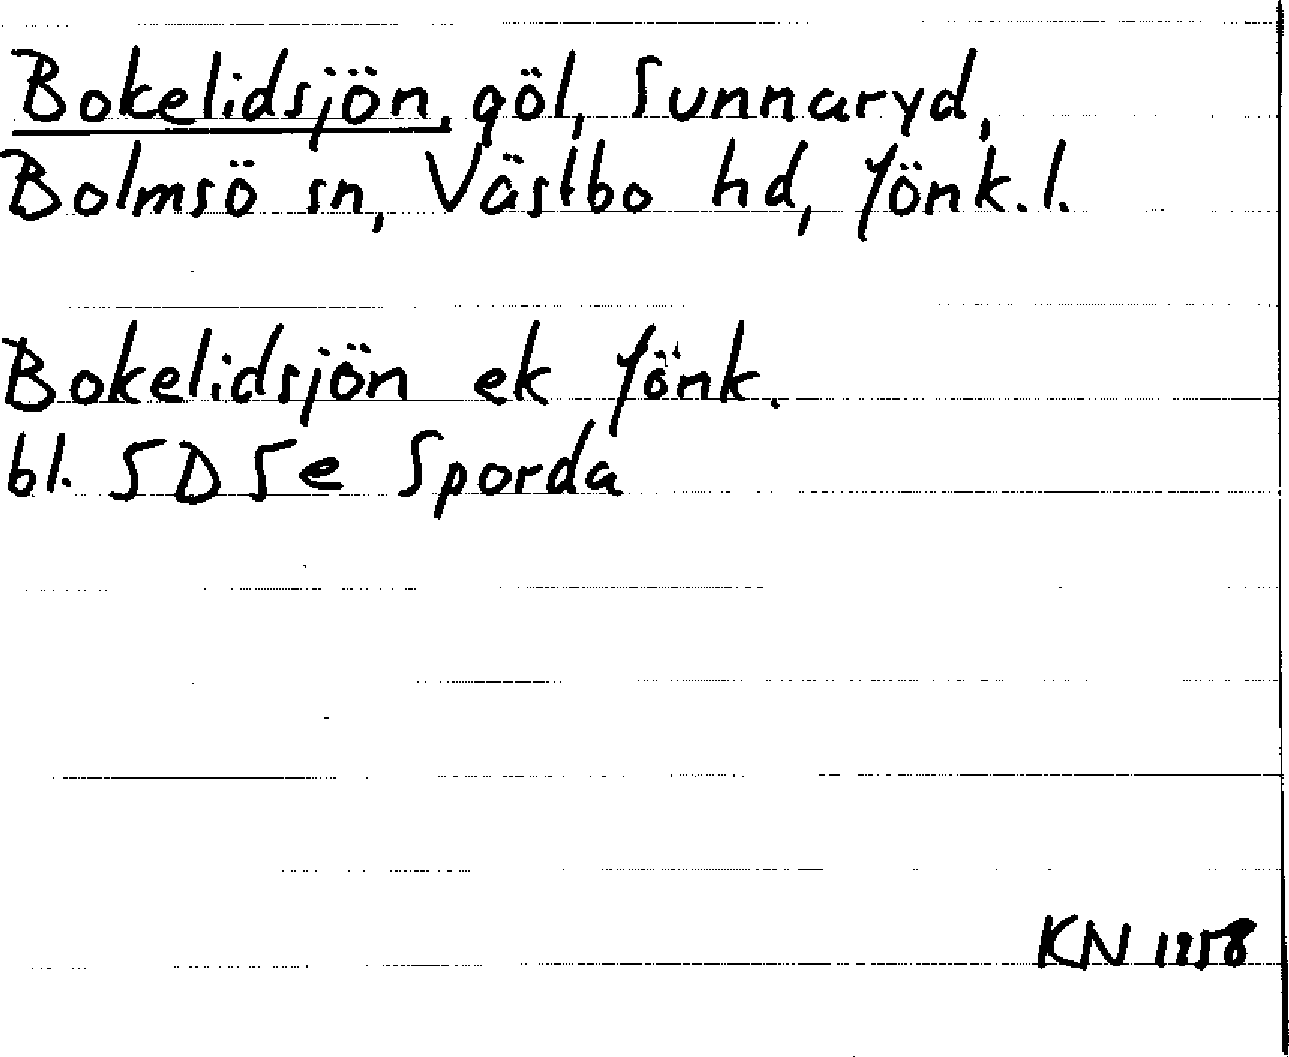 Bokelidsjön, göl, Sunnaryd,
Bolmsö sn, Västbo hd, Jönk.l.
Bokelidsjön ek Jönk.
bl. 5D5e Sporda
KN